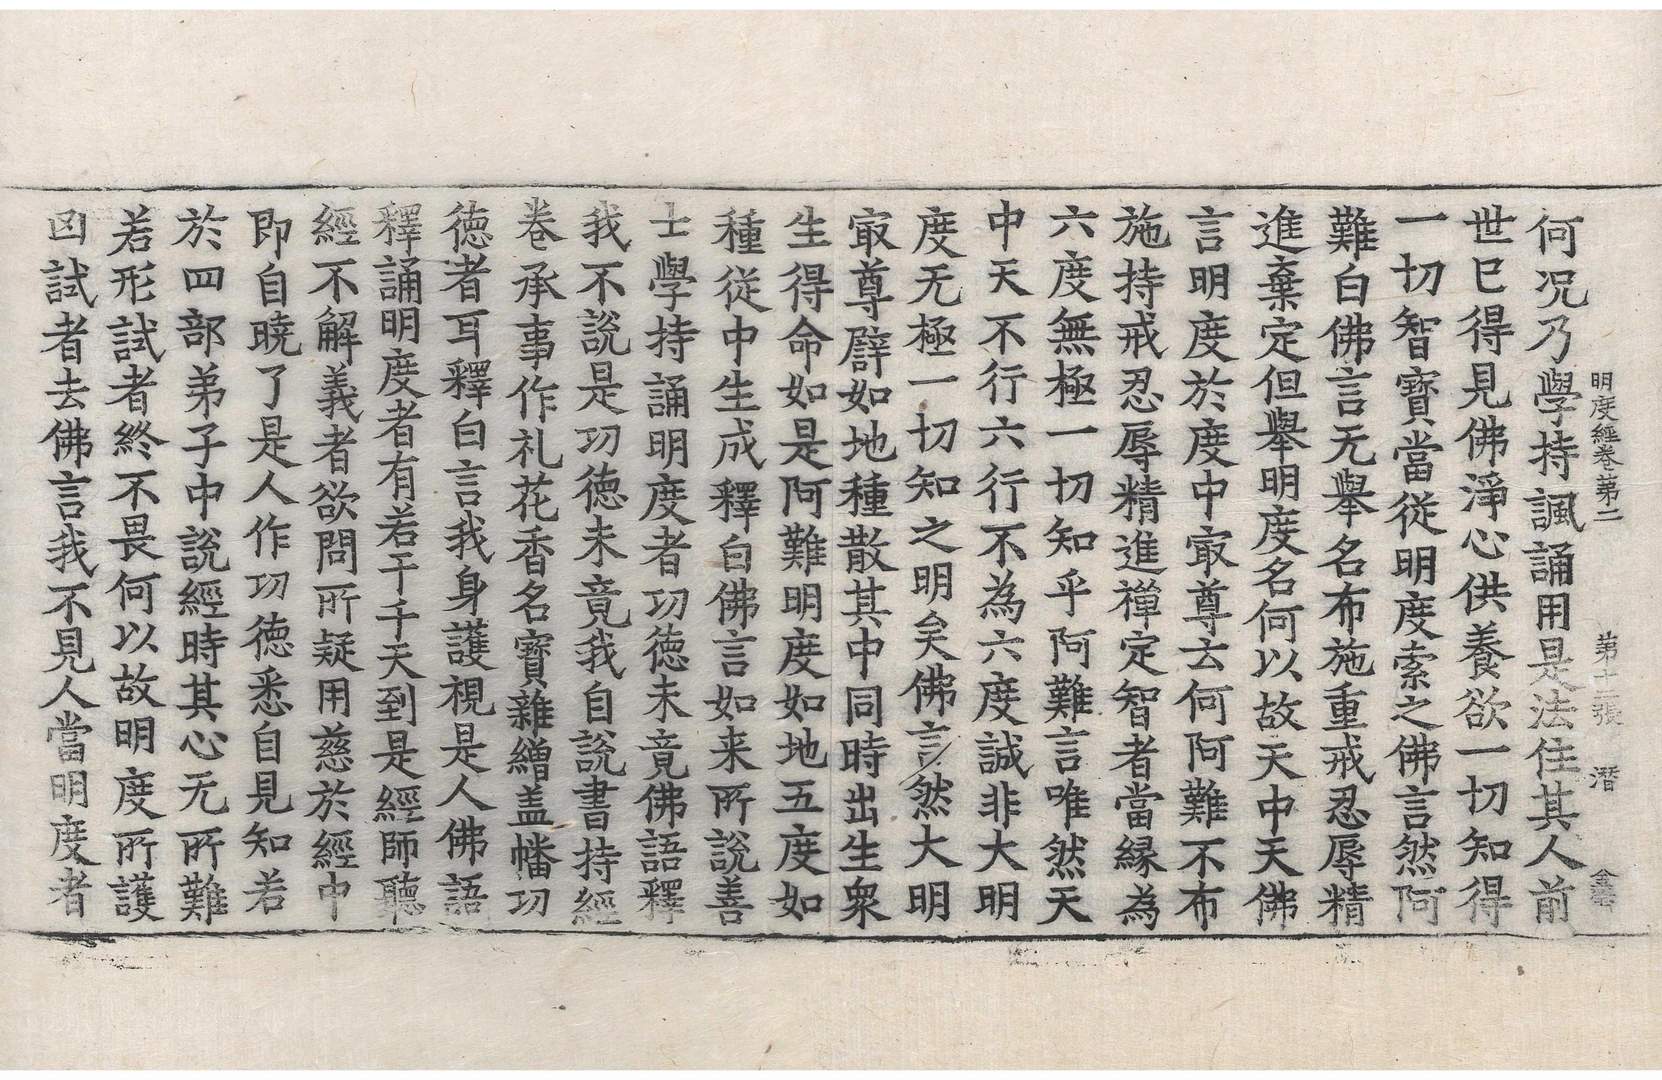 明度經卷第二 第十二張 潛
何况乃學持諷誦用是法住其人前
世已得見佛淨心供養欲一切知得
一切智寶當從明度索之佛言然阿
難白佛言无舉名布施重戒忍辱精
進棄定但舉明度名何以故天中天佛
言明度於度中冣尊云何阿難不布
施持戒忍辱精進禪定智者當緣為
六度無極一切知乎阿難言唯然天
中天不行六行不為六度誠非大明
度无極一切知之明矣佛言然大明
冣尊譬如地種散其中同時出生衆
生得命如是阿難明度如地五度如
種從中生成釋白佛言如来所說善
士學持誦明度者功德未竟佛語釋
我不說是功德未竟我自說書持經
卷承事作礼花香名寶雜繒盖幡功
德者耳釋白言我身護視是人佛語
釋誦明度者有若干千天到是經師聽
經不解義者欲問所疑用慈於經中
即自曉了是人作功德悉自見知若
於四部弟子中說經時其心无所難
若形試者終不畏何以故明度所護
囙試者去佛言我不見人當明度者